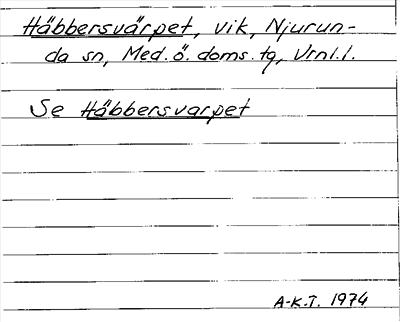 Häbbersvärpet, vik, Njurun-
da sn, Med. ö. doms. tg, Vrnl. l.
Se Häbbersvarpet
A-K.T. 1974